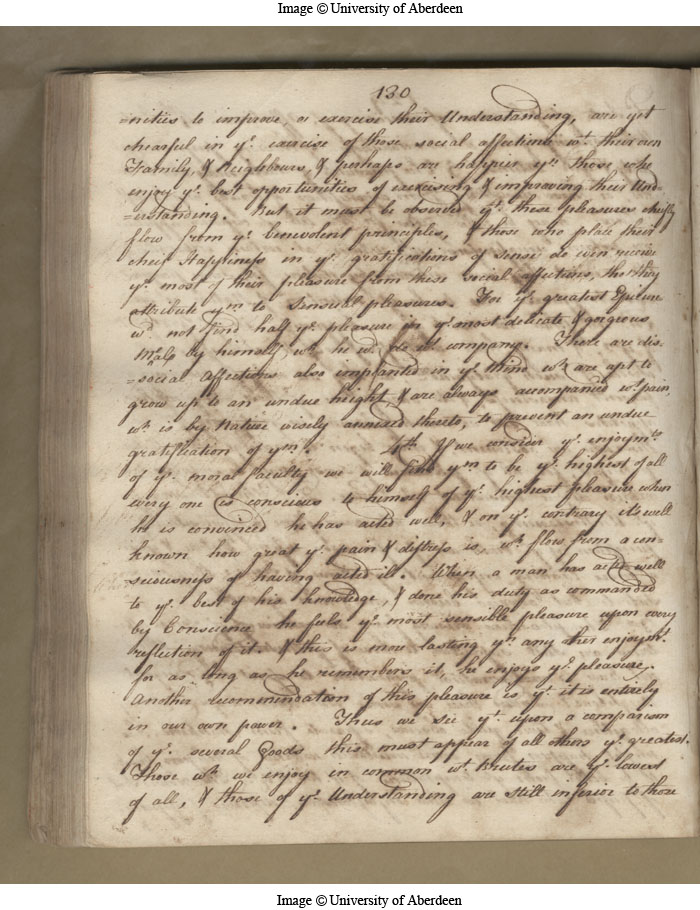 Image © University of Aberdeen
130
=nities to improve or exercise their Understanding, are yet
chearful in yᵉ. exercise of those social affections wᵗ. their own
Family, & Neighbours, & perhaps are happier yⁿ. those who
enjoy yᵉ. best opportunities of exercising & improving their Und-
=erstanding. But it must be observed yᵗ. these pleasures chiefly
flow from yᵉ. benevolent principles, & those who place their
chief Happiness in yᵉ. gratifications of sense do even receive
yᵉ. most of their pleasure from these social affections, tho' they
attribute yᵐ to Sensual pleasures. For yᵉ. greatest Epicure
wᵈ. not find half yᵉ. pleasure in yᵉ. most delicate & gorgeous
Meals by himself, wᶜ. he wᵈ. do wᵗ. company. There are dis-
=social affections also implanted in yᵉ. Mind wᶜ. are apt to
grow up to an undue height, & are always acompanied wᵗ. pain,
wᶜ. is by Nature wisely annexed thereto, to prevent an undue
gratification of yᵐ. 4th. If we consider yᵉ. enjoymᵗˢ.
of yᵉ. moral faculty we will find yᵐ to be yᵉ. highest of all
every one is conscious to himself of yᵉ. highest pleasure when
he is convinced he has acted well, & on yᵉ. contrary it's well
known how great yᵉ. pain & distress is, wᶜ. flows from a con-
=sciousness of having acted ill. When a man has acted well
to yᵉ. best of his knowledge, & done his duty as commanded
by Conscience he feels yᵉ. most sensible pleasure upon every
reflection of it. & this is more lasting yⁿ. any other enjoymᵗ.
for as long as he remembers it, he enjoys yᵉ. pleasure.
Another recommendation of this pleasure is yᵗ. it is entirely
in our own power. Thus we see yᵗ. upon a comparison
of yᵉ. several Goods this must appear of all others yᵉ. greatest.
Those wᶜ. we enjoy in common wᵗ. Brutes are yᵉ. lowest
of all, & those of yᵉ. Understanding are still inferior to those
Image © University of Aberdeen